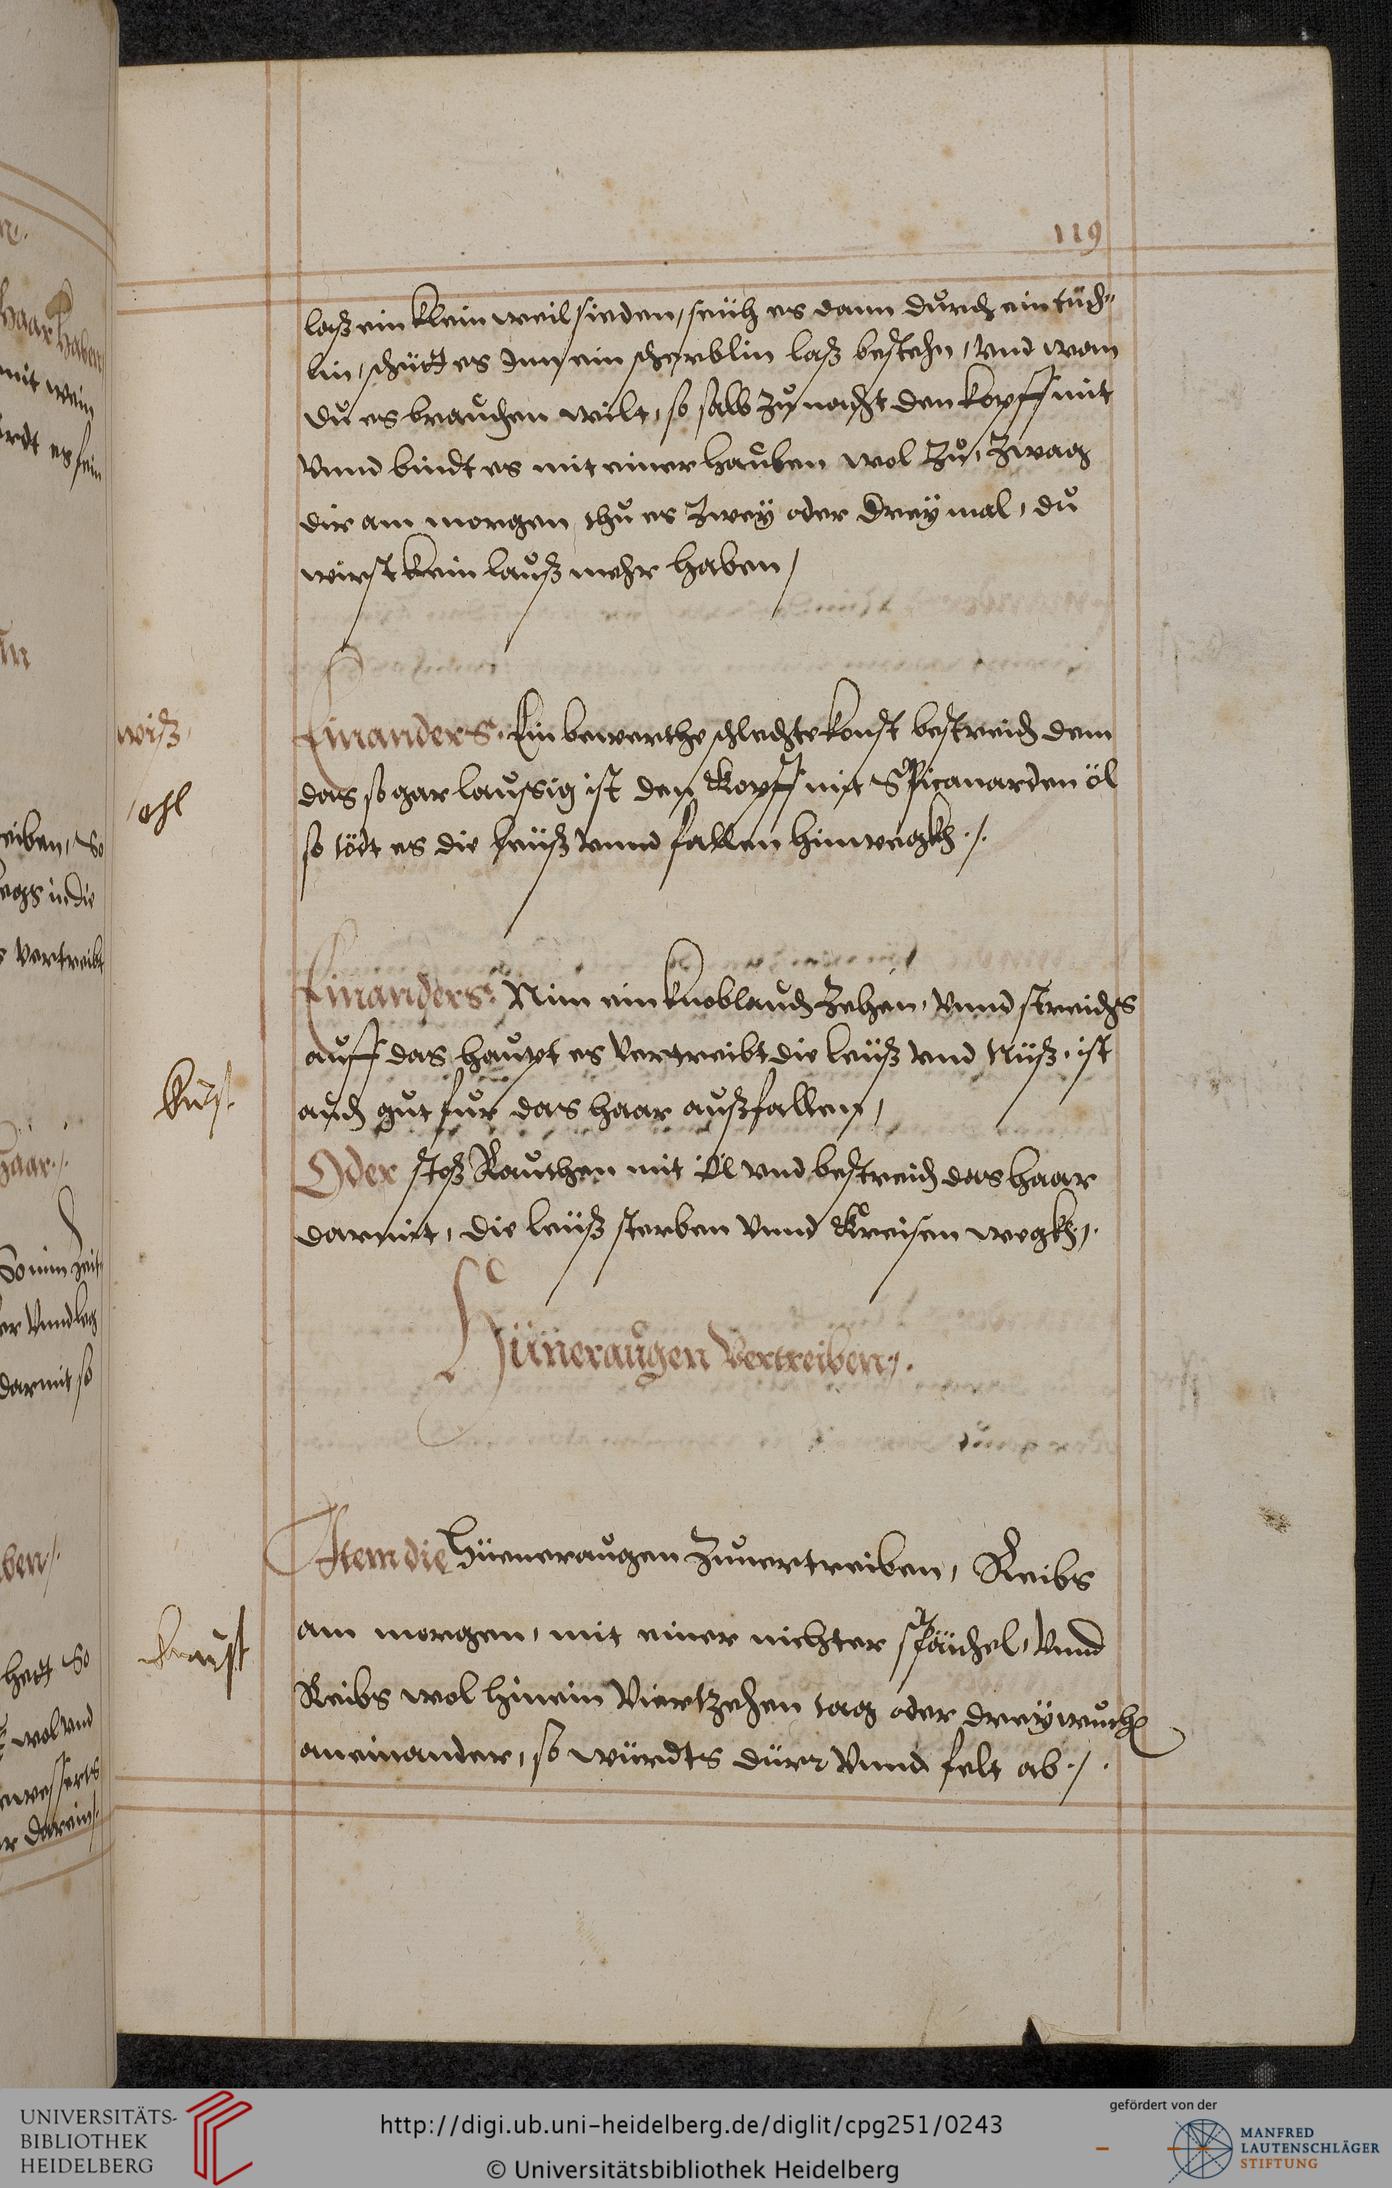 119
laß ein klein weil sieden, seüh es dann durch ein tuch-
lin, schütt es Inn ein scherblin laß bestehn, vnd wan
du es brauchen wilt, so salb zu nacht den kopff mit
Vnnd bindt es mit einer hauben wol zu, zwag
dir am morgen, thu es zwey oder drey mal, du
wirst kein lauß mehr haben,
Einanders. Ein bewerthe schlechte konst bestreich dem
das so gar laussig ist den Kopff mit Spicanarden öl
so tödt es die leüß vnnd fallen hinwegkh ./.
Einanders. Nim ein knoblauch Zehen, vnnd streichs
auff das haupt es vertreibt die leüß vnd Nüß, ist
auch gut fur das haar außfallen,
Oder stoß Rauthen mit öl vnd bestreich das haar
darmit, die leüß sterben vnnd kreisen wegkh,.
Hüneraugen Vertreiben,.
Item die hüeneraugen zuuertreiben, Reibs
am morgen, mit einer nichter späichel, vnnd
Reibs wol hinein viertzehen tag oder drey wuch
aneinander, so würdts dürr vnnd felt ab ./.
haar haben
mit wein
es sein
wiß
ohl
eiben, So
vertreibt
haar ./.
So nim
vnnd leg
darmit so
ben ./.
hett So
wol vnd
darein
UNIVERSITÄTS-
BIBLIOTHEK
HEIDELBERG
http://digi.ub.uni-heidelberg.de/diglit/cpg251/0243
© Universitätsbibliothek Heidelberg
gefördert von der
MANFRED
LAUTENSCHLÄGER
STIFTUNG